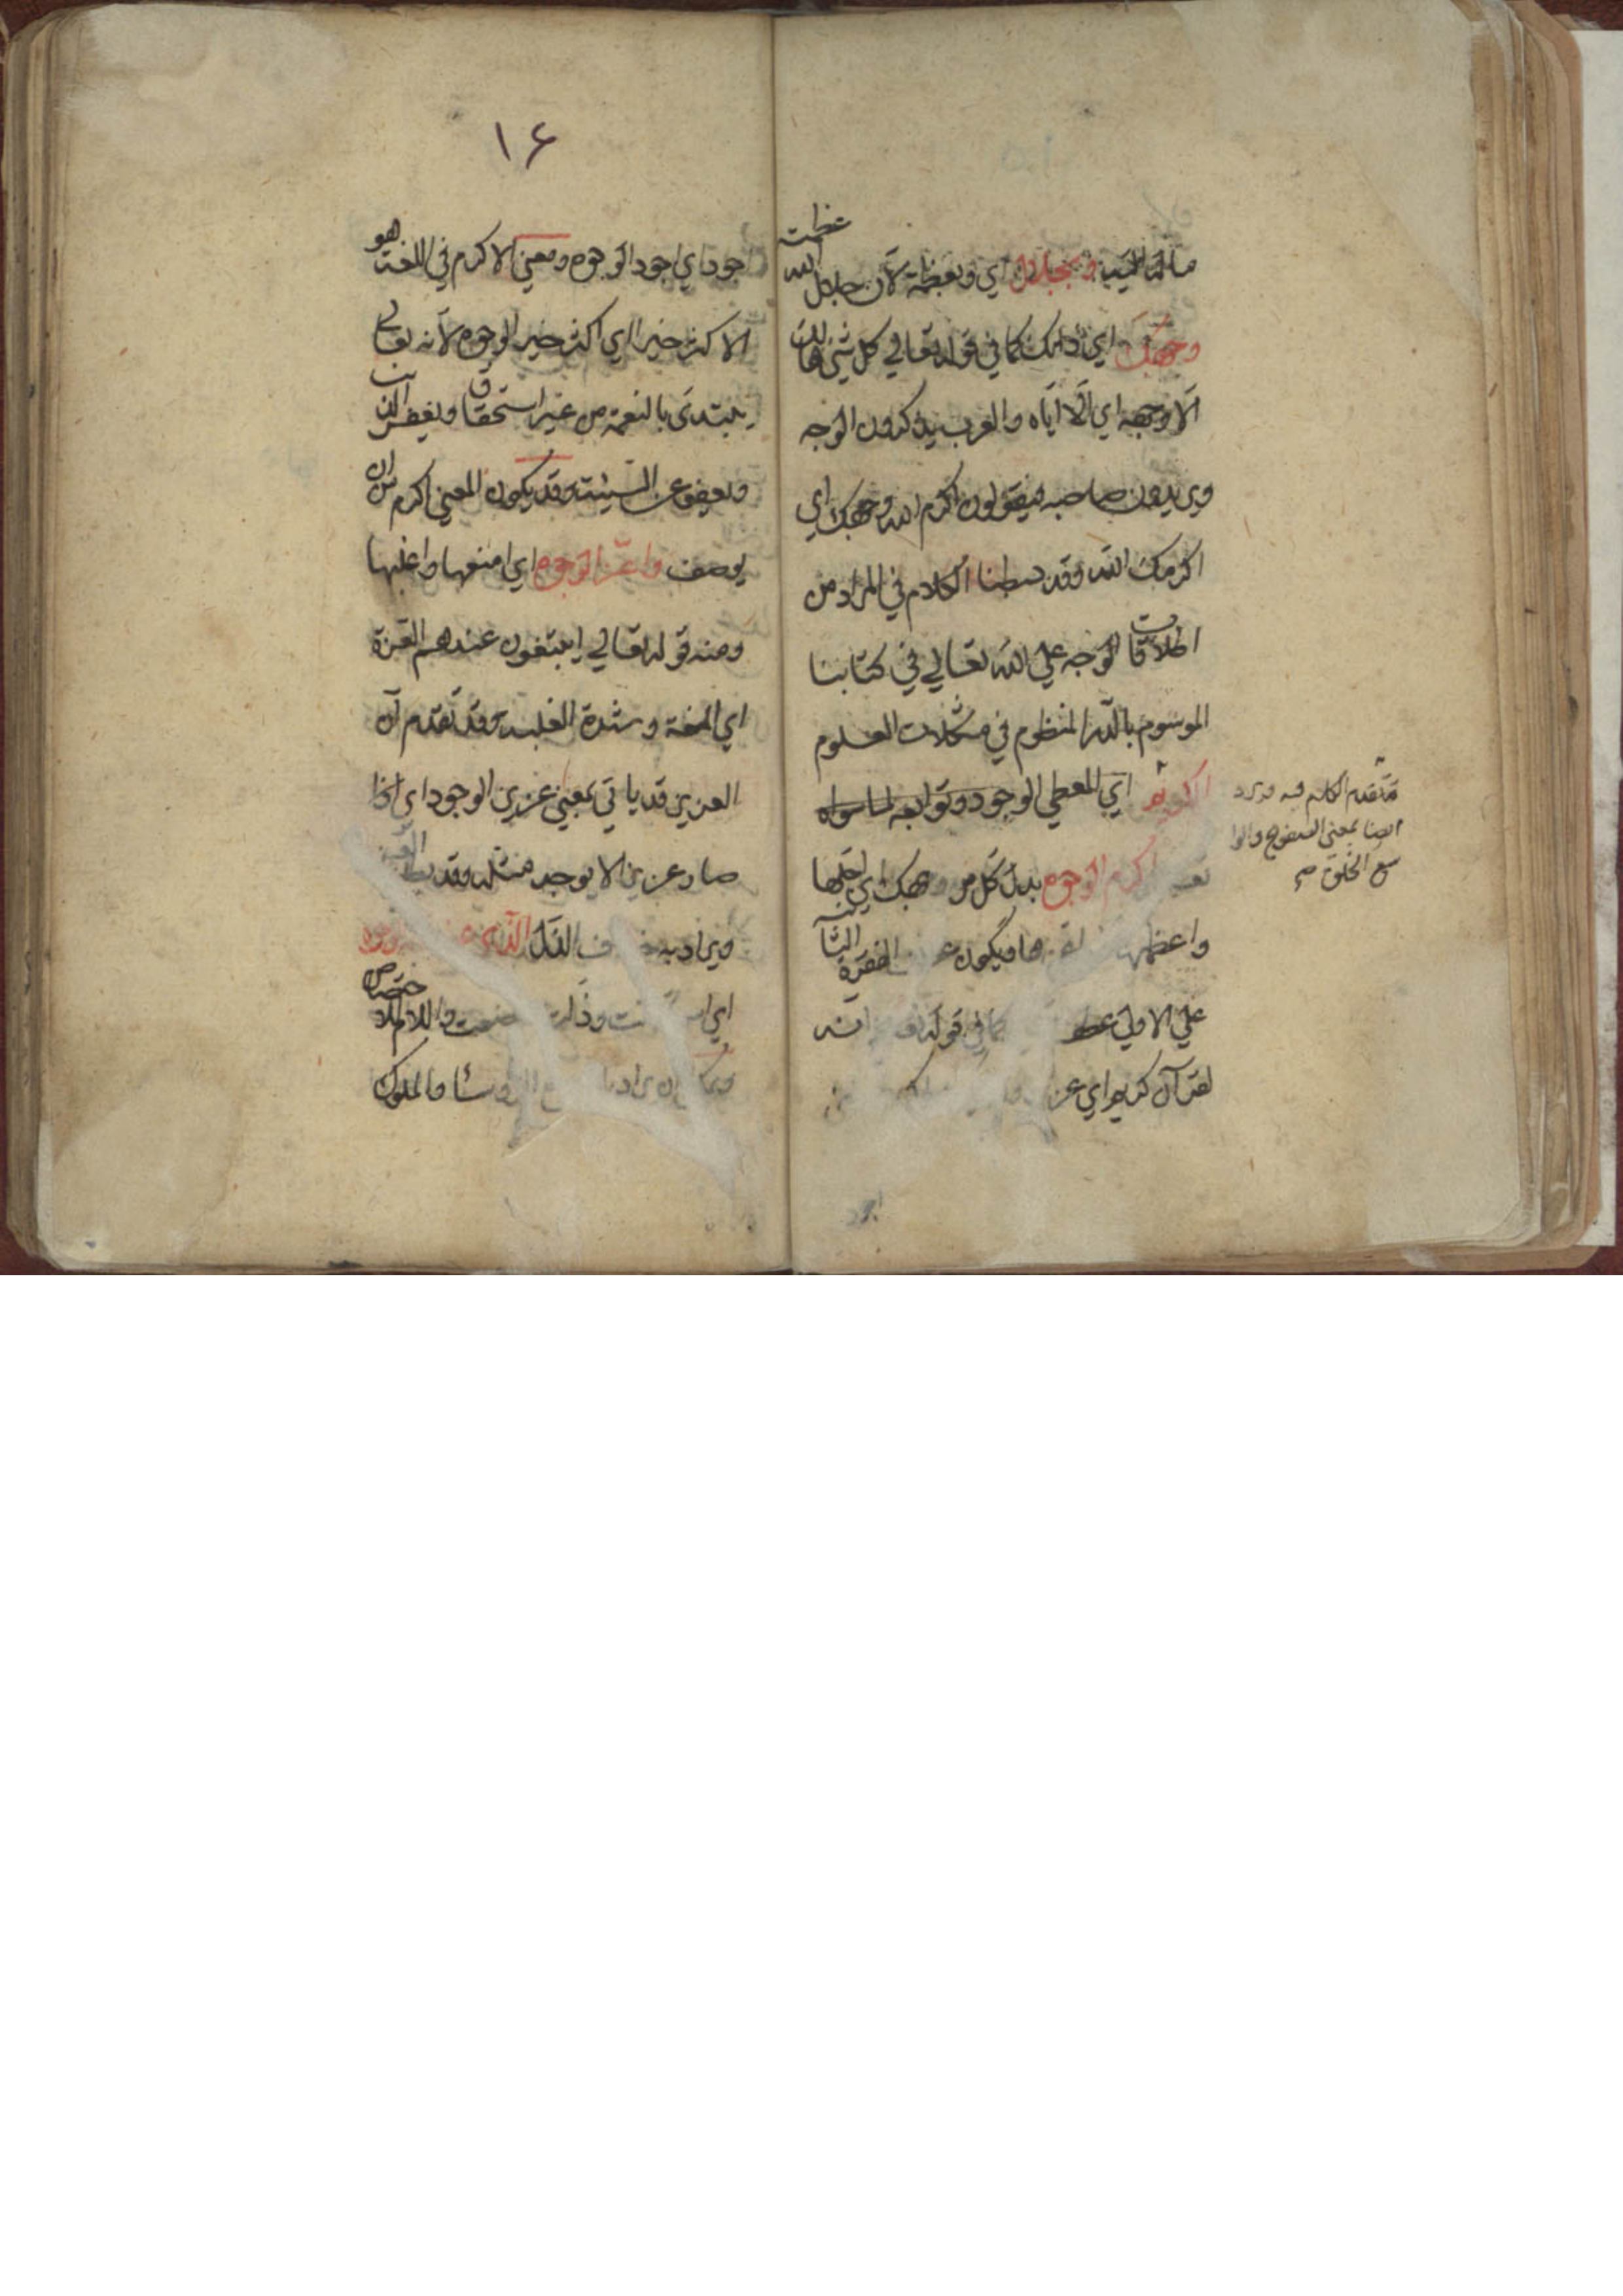 وبجلال اي وبعظمة لان جلال الله عظمت
وجهك اي ذاتك كما في قوله تعالي كل شئ هالك
الا وجهه اي الا اياه والعرب يذكرون الوجه
ويريدون صاحبه فيقولون اكرم الله وجهك اي
اكرمك الله وقد بسطنا الكلام في المراد من
اطلاقات الوجه علي الله تعالي في كتابنا
الموسوم بالدر المنظوم في مشكلات العلوم
الكريم اي المعطي الوجود وتوابعه لما سواه
اكرم الوجوه بدل كل من وجهك اي اجلها
واعظمها فيكون الفقرة الثانية
علي الاولي كما في قوله انه
لقرآن كريم اي
تقدم الكلام فيه
ايضا بمعني الصفوح والوا
سع الخلق صح
اجود
١۶
اجود اي اجود الوجوه ومعني الاكرم في اللغة هو
الاكثر خيرا اي اكثر خير الوجوه لانه تعالي
يبتدئ بالنعمة من غير استحقاق ويغفر الذنب
ويعفو عن السيئة وقد يكون المعني اكرم من ان
يوصف واعز الوجوه اي امنعها واغلبها
ومنه قوله تعالي ايبتغون عندهم العزة
اي المنعة وشدة الغلبة وقد تقدم ان
العزيز قد ياتي بمعني عزيز الوجود اي اذا
صار عزيزا لا يوجد مثله وقد العز
ويراد به الذل الذي
اي وذلت واللام للاختصاص
ان يراد والملوك